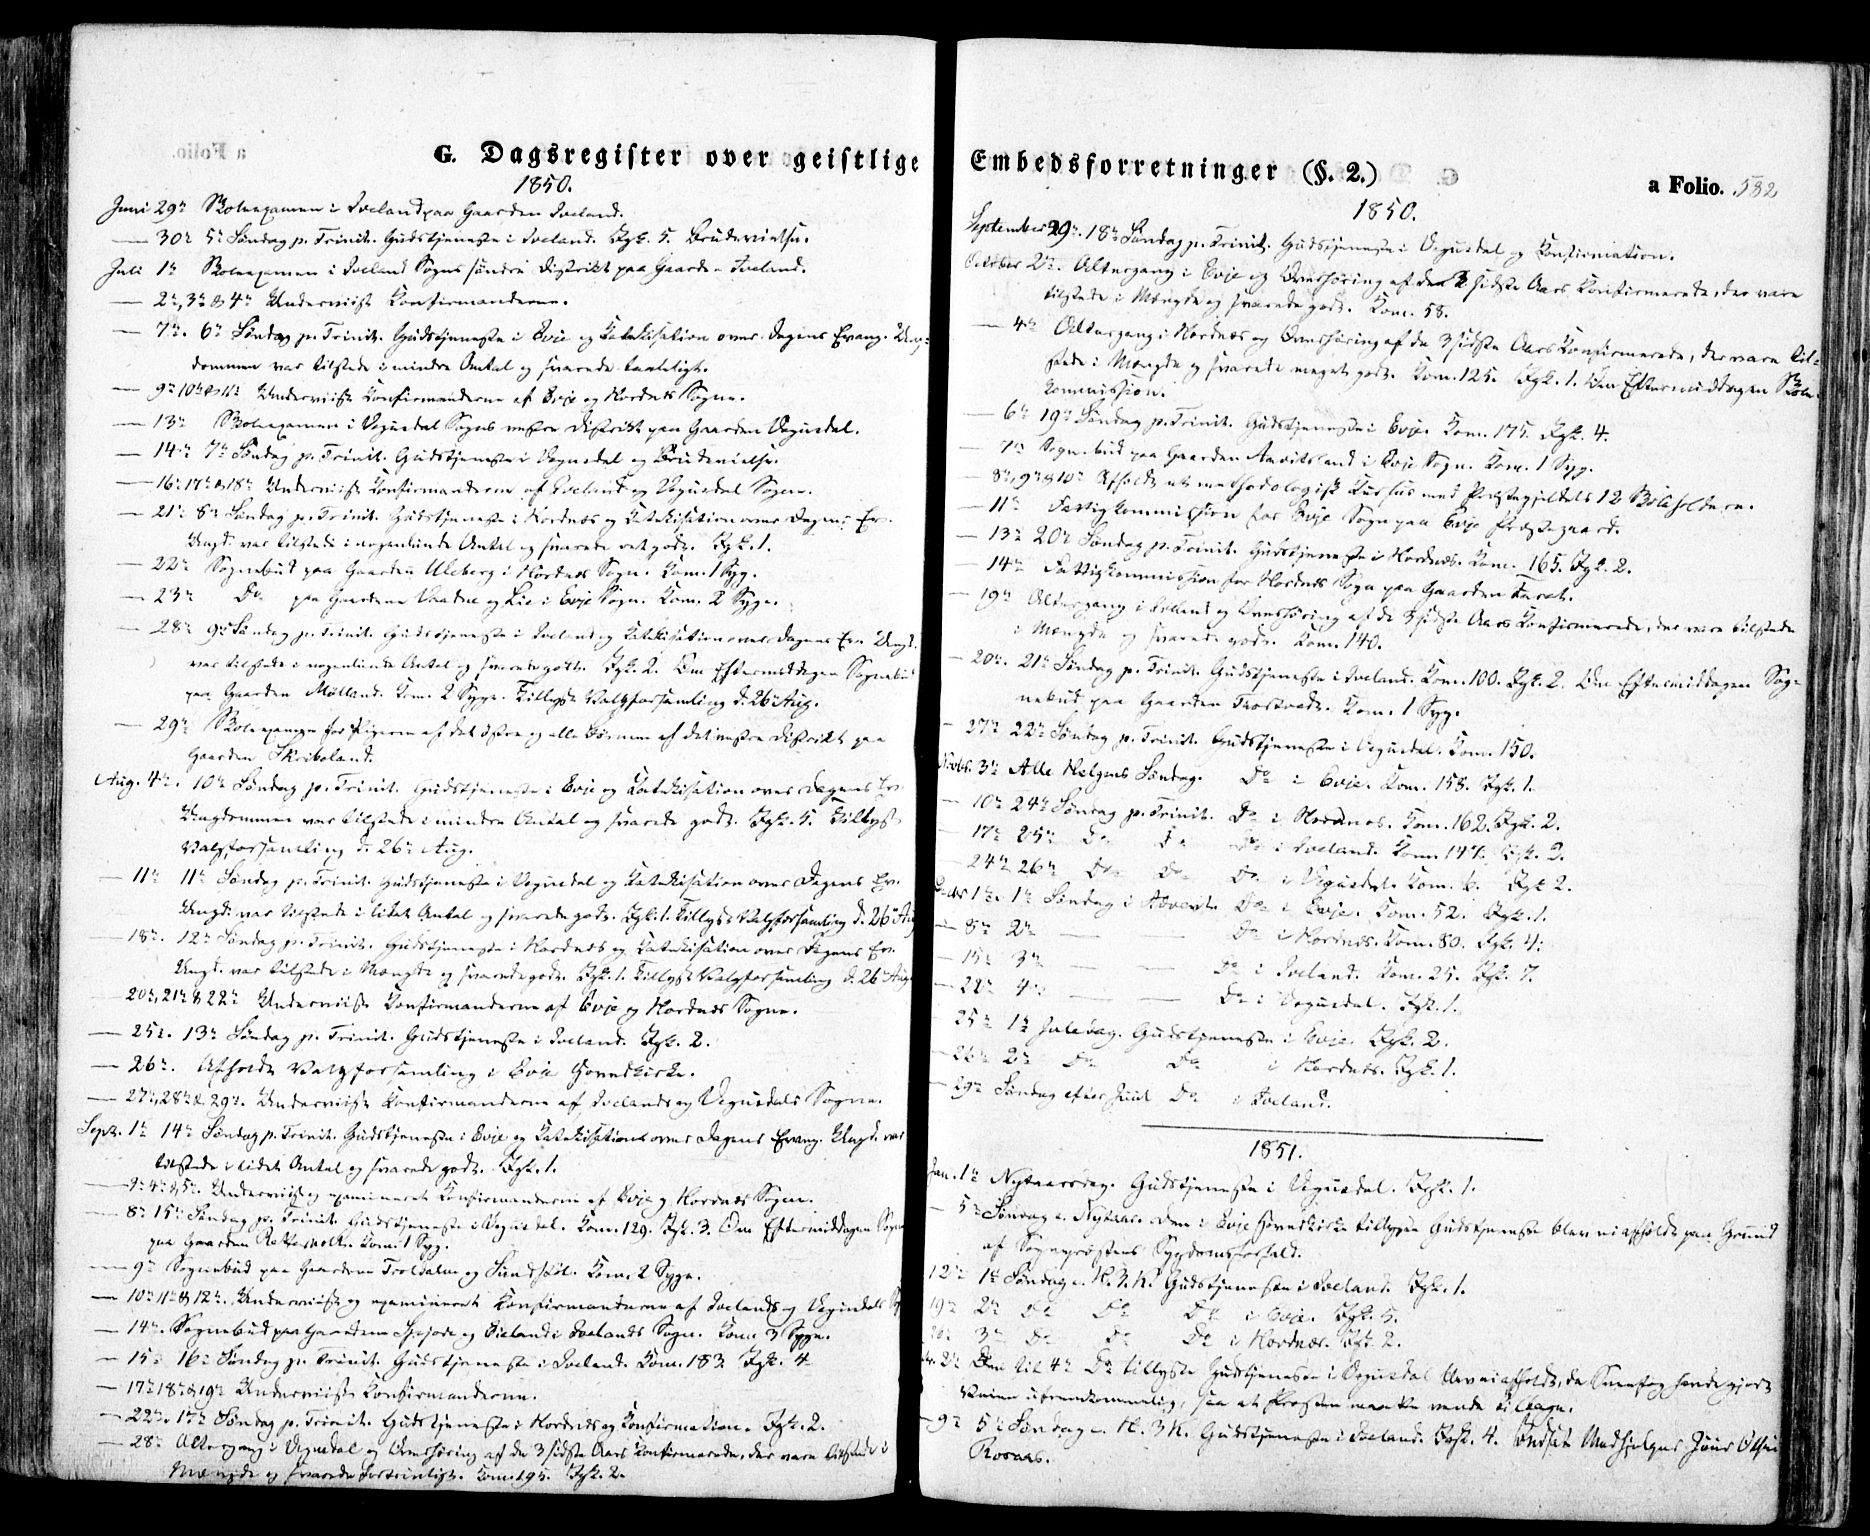 G. Dagsregister over geistlige
1850.
Juni 29de Skoleexamen i Iveland paa Gaarden Iveland.
— 30te 5te Søndag p. Trinit. Gudstjeneste i Iveland. Igk. 5. Brudevielse.
Juli 1te Skoleexamen i Iveland Sogns søndre Distrikt paa Gaarden Iveland.
— 2den, 3die & 4de Underviist Konfirmanderne.
— 7de. 6te Søndag p. Trinit. Gudstjeneste i Evje og Katekisation over Dagens Evang. Ung-
dommen var tilstede i mindre Antal og svarede taaleligt.
— 9de 10de & 11te Underviist Konfirmanderne af Evje og Hordnæs Sogne.
— 13de Skoleexamen i Vegusdal Sogns vestre Distrikt paa Gaarden Vegusdal.
— 14de 7de Søndag p. Trinit. Gudstjeneste i Vegusdal og Brudevielse.
— 16de 17de & 18de Underviist Konfirmanderne af Iveland og Vegusdal Sogne.
— 21de 8de Søndag p. Trinit. Gudstjeneste i Hordnæs og Katekisation over Dagens Ev.
Ungd. var tilstede i nogenlunde Antal og svarede ret godt. Igk. 1.
— 22de Sognebud paa Gaarden Uleberg i Hordnæs Sogn. Kom. 1 Syg.
— 23de Do paa Gaardene Vaadne og Lie i Evje Sogn. Kom. 2 Syge.
— 28de 9de Søndag p. Trinit. Gudstjeneste i Iveland og Katekisation over Dagens Ev. Ungd.
var tilstede i nogenlunde Antal og svarede godt. Igk. 2. Om Eftermiddagen Sognebud
paa Gaarden Mølland. Kom. 2 Syge. Tillyst Valgforsamling d. 26de Aug.
— 29de Skoleexamen for Pigerne af det østre og alle Børnene af det vestre Distrikt paa
Gaarden Skribeland.
Aug. 4de. 10de Søndag p. Trinit. Gudstjeneste i Evje og Katekisation over Dagens Ev.
Ungdommen var tilstede i mindre Antal og svarede godt. Igk. 5. Tillyst
Valgforsamling d. 26de Aug.
— 11te 11te Søndag p. Trinit. Gudstjeneste i Vegusdal og Katekisation over Dagens Ev.
Ungd. var tilstede i lidet Antal og svarede godt. Igk. 1. Tillyst Valgforsamling d. 26de Aug
— 18de. 12te Søndag p. Trinit. Gudstjeneste i Hordnæs og Katekisation over Dagens Ev.
Ungd. var tilstede i Mængde og svarede godt. Igk. 1. Tillyst Valgforsamling d. 26de Aug.
— 20de, 21de & 22de Underviist Konfirmanderne af Evje og Hordnæs Sogne.
— 25de. 13de Søndag p. Trinit. Gudstjeneste i Iveland. Igk. 2.
— 26de. Afholdt Valgforsamling i Evje Hovedkirke.
— 27de, 28de & 29de. Underviist Konfirmanderne af Ivelands og Vegusdals Sogne.
Septr. 1te 14de Søndag p. Trinit. Gudstjeneste i Evje og Katekisation over Dagens Evang. Ungd. var
tilstede i lidet Antal og svarede godt. Igk. 1.
— 4de & 5te. Underviist og examineret Konfirmanderne af Evje og Hordnæs Sogne.
— 8de 15de Søndag p. Trinit. Gudstjeneste i Vegusdal. Kom. 129. Igk. 3. Om Eftermiddagen Sogne
paa Gaarden Kom. 1 Syg.
— 9de Sognebud paa Gaardene og Kom. 2 Syge.
— 10de 11te & 12te. Underviist og examineret Konfirmanderne af Ivelands og Vegusdals
— 14de. Sognebud paa Gaardene og i Ivelands Sogn. Kom. 3 Syge.
— 15de 16de Søndag p. Trinit. Gudstjeneste i Iveland. Kom. 183. Igk. 4
— 17de 18de & 19de Underviist Konfirmanderne.
— 22de. 17de Søndag p. Trinit. Gudstjeneste i Hordnæs og Confirmation. Igk. 2.
— 28de Altergang i Vegusdal og Overhøring af de 3 sidste Aars Konfirmerede, der vare tilstede i
Mængde og svarede fortrinligt. Kom. 195. Igk. 2.
Embedsforretninger (§. 2.)
a Folio. 582
1850.
September 29de. 18de Søndag p. Trinit. Gudstjeneste i Vegusdal og Konfirmation.
October 2den. Altergang i Evje og Overhøring af de 3 sidste Aars Konfirmerede, der vare
tilstede i Mængde og svarede godt. Kom. 58.
— 4de Altergang i Hordnæs og Overhøring af de 3 sidste Aars Konfirmerede, der vare til-
stede i Mængde og svarede meget godt. Kom. 125. Igk. 1. Om Eftermiddagen Skole-
kommission.
— 6te 19de Søndag p. Trinit. Gudstjeneste i Evje. Kom. 175. Igk. 4.
— 7de Sognebud paa Gaarden i Evje Sogn. Kom. 1 Syg.
— 8de, 9de & 10de Afholdt et methodologisk Kursus med Præstegjeldets 12 Skoleholdere.
— 11te Fattigkommission for Evje Sogn paa Evje Præstegaard.
— 13de 20de Søndag p. Trinit. Gudstjeneste i Hordnæs. Kom. 165. Igk. 2.
— 14de Fattigkommission for Hordnæs Sogn paa Gaarden
— 19de Altergang i Iveland og Overhøring af de 3 sidste Aars Konfirmerede, der vare tilstede
i Mængde og svarede godt. Kom. 140.
— 20de. 21de Søndag p. Trinit. Gudstjeneste i Iveland. Kom. 100. Igk. 2. Om Eftermiddagen Sog-
nebud paa Gaarden Kom. 1 Syg.
— 27de 22de Søndag p. Trinit. Gudstjeneste i Vegusdal. Kom. 150.
Novbr. 3die Alle Helgens Søndag. Do i Evje. Kom. 158. Igk. 1.
— 10de 24de Søndag p. Trinit. Do i Hordnæs. Kom. 162. Igk. 2.
— 17de 25de Do Do Do i Iveland. Kom. 147. Igk. 2.
— 24de 26de Do Do Do i Vegusdal. Kom. 6. Igk. 2.
Decbr 1te. 1te Søndag i Advent. Do i Evje. Kom. 52. Igk. 1.
— 8de 2den — — Do i Hordnæs. Kom. 80. Igk. 4.
— 15de 3die — Do i Iveland. Kom. 25. Igk. 7.
— 22de 4de — — Do i Vegusdal. Igk. 1.
25de 1te Juledag. Gudstjeneste i Evje. Igk. 2.
— 26de 2den Do Do i Hordnæs. Igk. 1.
— 29de Søndag efter Juul Do i Iveland.
1851.
Jan. 1te Nytaarsdag. Gudstjeneste i Vegusdal. Igk. 1.
— 5te Søndag e. Nytaar. Den i Evje Hovedkirke tillyste Gudstjeneste blev ei afholdt paa Grund
af Sognepræstens Sygdomsforfald.
12te 1te Søndag e. H. 3. K. Gudstjeneste i Iveland. Igk. 1.
19de 2den Do Do Do i Evje. Igk. 5.
26de 3die Do Do Do i Hordnæs. Igk. 2.
2den Den til 4de Do tillyste Gudstjeneste i Vegusdal blev ei afholdt, da Sneefog havde gjort
Veien ufremkommelig, saa at Præsten maatte vende tilbage.
— 9de 5te Søndag e. H. 3 K. Gudstjeneste i Iveland. Igk. 4. Indsat Medhjelper
Rosaas.